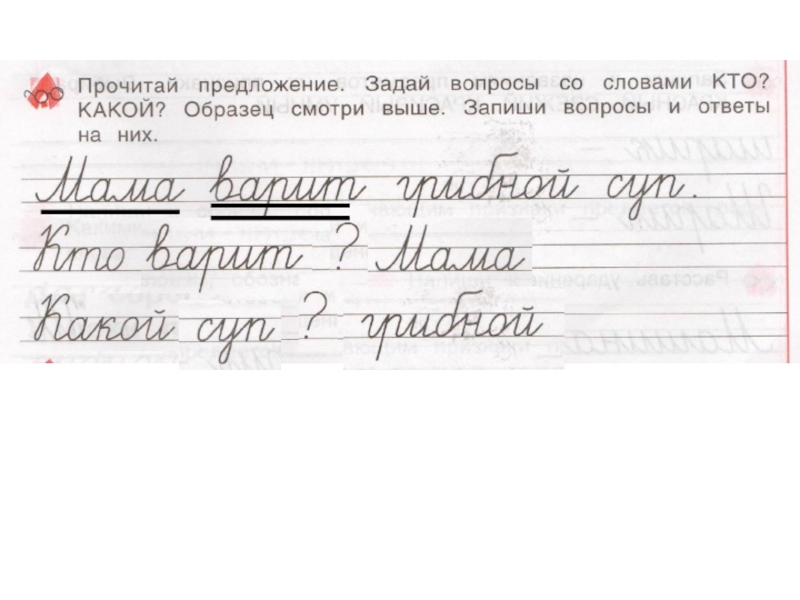 Прочитай предложение. Задай вопросы со словами КТО?
КАКОЙ? Образец смотри выше. Запиши вопросы и ответы
на них.
Мама варит грибной суп.
Кто варит ? Мама
Какой суп ? грибной